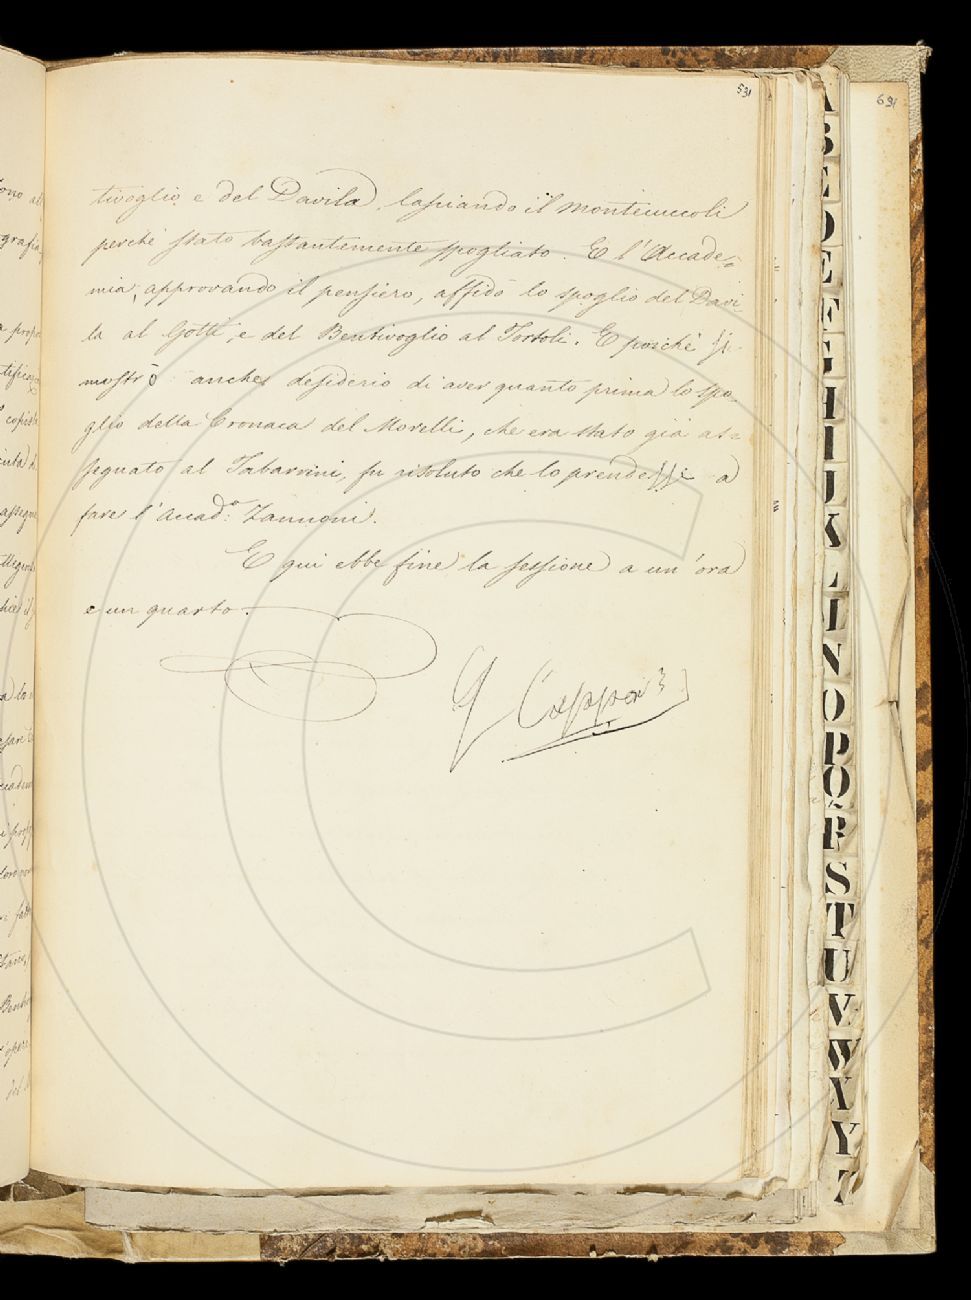 531
tivoglio e del Davila, lasciando il Montecuccoli
perchè stato bastantemente spogliato. E l'Accade=
mia, approvando il pensiero, affidò lo spoglio del Davi
la al Gotti, e del Bentivoglio al Tortoli. E poichè si
mostrò anche desiderio di aver quanto prima lo spo
glio della Cronaca del Morelli, che era stato già as=
segnato al Tabarrini, fu risoluto che lo prendessi a
fare l'Accad.o Zannoni.
E qui ebbe fine la sessione a un'ora
e un quarto.
G Capponi
691
B
E
D
E
F
G
H
I
J
K
L
N
O
P
Q
R
S
T
U
V
W
X
Y
Z